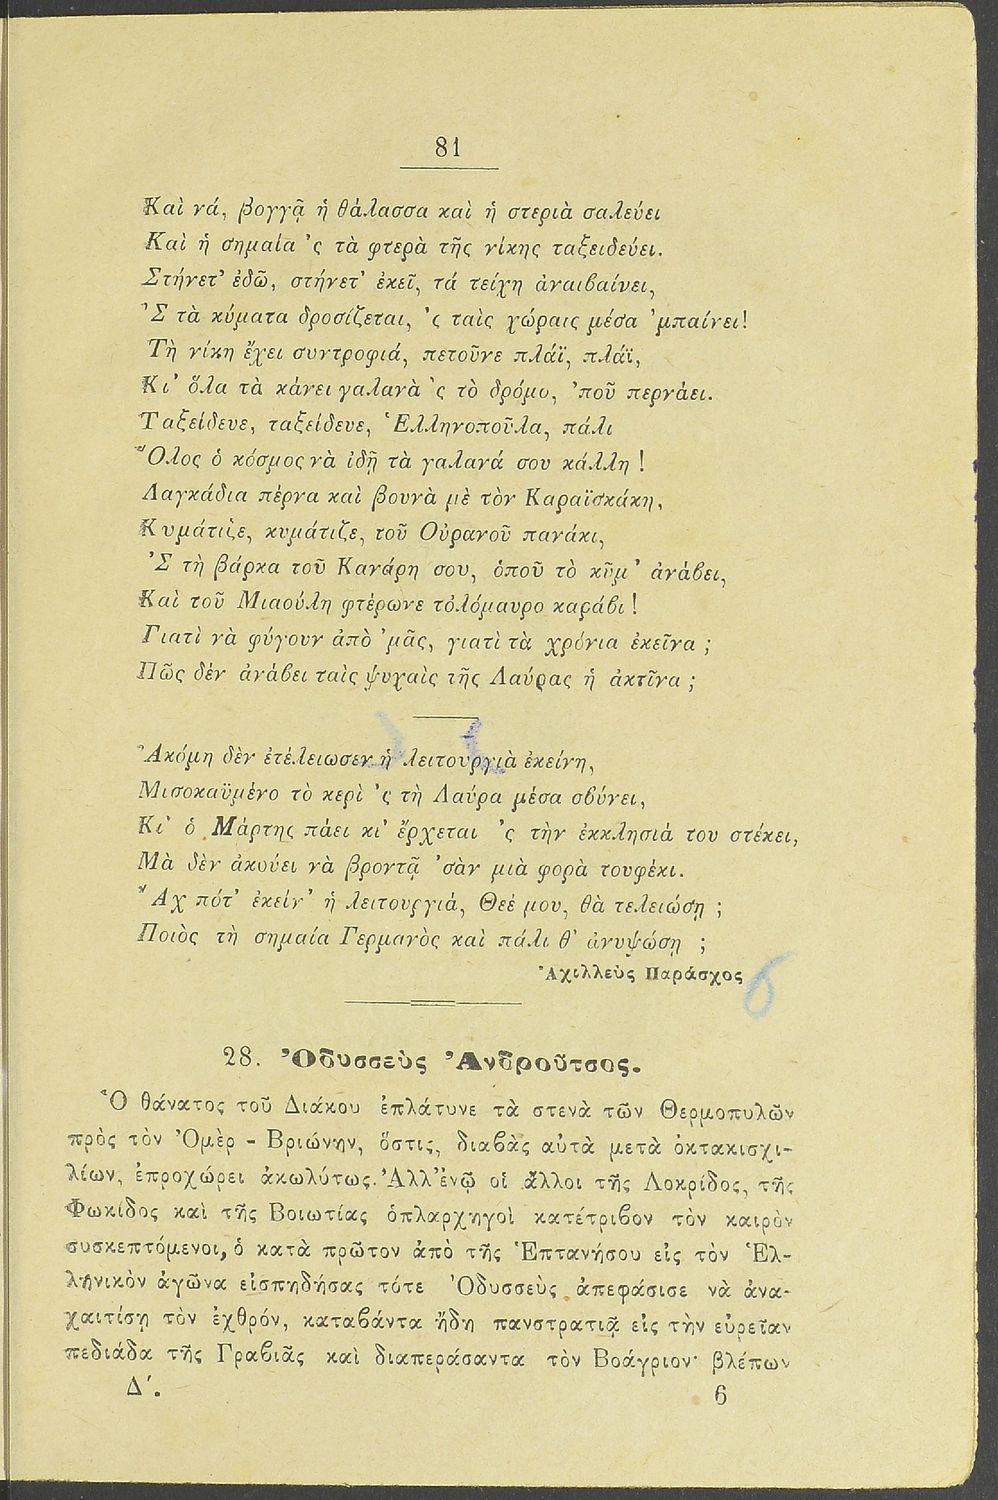 81
Καὶ νά, βογγᾷ ἡ θάλασσα καὶ ἡ στεριὰ σαλεύει
Καὶ ἡ σημαία 'ς τὰ φτερὰ τῆς νίκης ταξειδεύει.
Στήνετ' ἐδῶ, στήνετ' ἐκεῖ, τά τείχη ἀναιβαίνει,
Ἐ τὰ κύματα δροσίζεται, 'ς ταὶς χώραις μέσα 'μπαίνει!
Τὴ νίκη ἔχει συντροφιά, πετοῦνε πλάϊ, πλάϊ,
Κι' ὅλα τὰ κάνει γαλανὰ 'ς τὸ δρόμο, 'ποῦ περνάει.
Ταξείδευε, ταξείδευε, Ἑλληνοποῦλα, πάλι
Ὅλος ὁ κόσμος νὰ ἰδῇ τὰ γαλανά σου κάλλη!
Λαγκάδια πέρνα καὶ βουνὰ μὲ τὸν Καραϊσκάκη,
Κυμάτιζε, κυμάτιζε, τοῦ Οὐρανοῦ πανάκι,
'Σ τὴ βάρκα τοῦ Κανάρη σου, ὁποῦ τὸ κῦμ' ἀνάβει,
Καὶ τοῦ Μιαούλη φτέρωνε τὁλόμαυρο καράβι!
Γιατὶ νὰ φύγουν ἀπὸ 'μᾶς, γιατὶ τὰ χρόνια ἐκεῖνα;
Πῶς δέν ἀνάβει ταὶς ψυχαὶς τῆς Λαύρας ἡ ἀκτῖνα;
Ἀκόμη δὲν ἐτέλειωσεν ἡ λειτουργιὰ ἐκείνη,
Μισοκαϋμένο τὸ κερὶ 'ς τὴ Λαύρα μέσα σβύνει,
Κι' ὁ Μάρτης πάει κι' ἔρχεται 'ς τὴν ἐκκλησιά του στέκει,
Μὰ δὲν ἀκούει νὰ βροντᾷ 'σὰν μιὰ φορὰ τουφέκι.
Ἄχ πότ' ἐκείν' ἡ λειτουργιά, Θεέ μου, θὰ τελειώσῃ;
Ποιὸς τὴ σημαία Γερμανὸς καὶ πάλι θ' ἀνυψώσῃ;
Ἀχιλλεὺς Παράσχος
6
28. Ὀδυσσεὺς Ἀνδροῦτσος.
Ὁ θάνατος τοῦ Διάκου ἐπλάτυνε τὰ στενὰ τῶν Θερμοπυλῶν
πρὸς τὸν Ὀμὲρ - Βριώνην, ὅστις, διαβὰς αὐτὰ μετὰ ὀκτακισχι-
λίων, ἐπροχώρει ἀκωλύτως. Ἀλλ' ἐνῷ οἱ ἄλλοι τῆς Λοκρίδος, τῆς
Φωκίδος καὶ τῆς Βοιωτίας ὁπλαρχηγοὶ κατέτριβον τὸν καιρὸν
συσκεπτόμενοι, ὁ κατὰ πρῶτον ἀπὸ τῆς Ἑπτανήσου εἰς τὸν Ἑλ-
ληνικὸν ἀγῶνα εἰσπηδήσας τότε Ὀδυσσεὺς ἀπεφάσισε νὰ ἀνα-
χαιτίσῃ τὸν ἐχθρόν, καταβάντα ἤδη πανστρατιᾷ εἰς τὴν εὐρεῖαν
πεδιάδα τῆς Γραβιᾶς καὶ διαπεράσαντα τὸν Βοάγριον· βλέπων
Δ'.
6